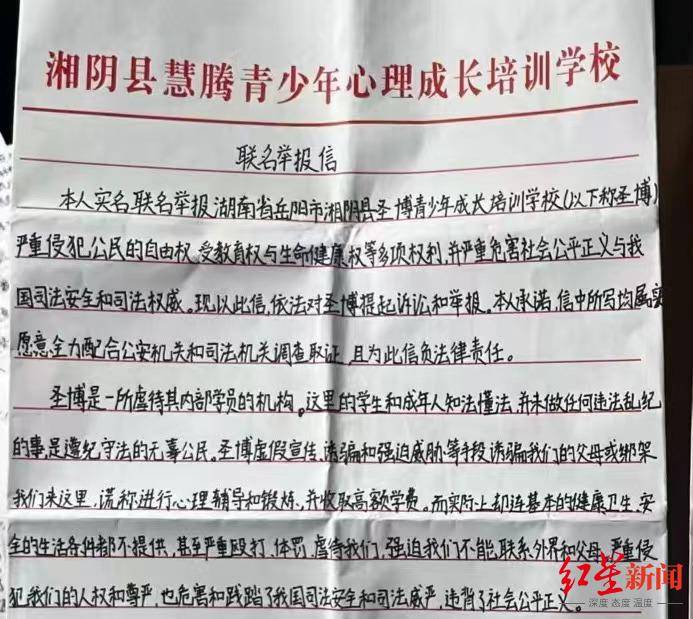 湘阴县慧腾青少年心理成长培训学校
联名举报信
本人实名联名举报湖南省岳阳市湘阴县圣博青少年成长培训学校(以下称圣博)
严重侵犯公民的自由权、受教育权与生命健康权等多项权利,并严重危害社会公平正义与我
国司法安全和司法权威。现以此信,依法对圣博提起诉讼和举报。本人承诺,信中所写均属实
愿意全力配合公安机关和司法机关调查取证,且为此信负法律责任。
圣博是一所虐待其内部学员的机构。这里的学生和成年人知法懂法,并未做任何违法乱纪
的事,是遵纪守法的无辜公民。圣博虚假宣传,诱骗和强迫威胁等手段诱骗我们的父母或绑架
我们来这里,谎称进行心理辅导和锻炼,并收取高额学费。而实际上却连基本的健康卫生、安
全的生活条件都不提供,甚至严重殴打、体罚、虐待我们,强迫我们不能联系外界和父母,严重侵
犯我们的人权和尊严,也危害和践踏了我国司法安全和司法威严,违背了社会公平正义。
红星新闻
深度 态度 温度